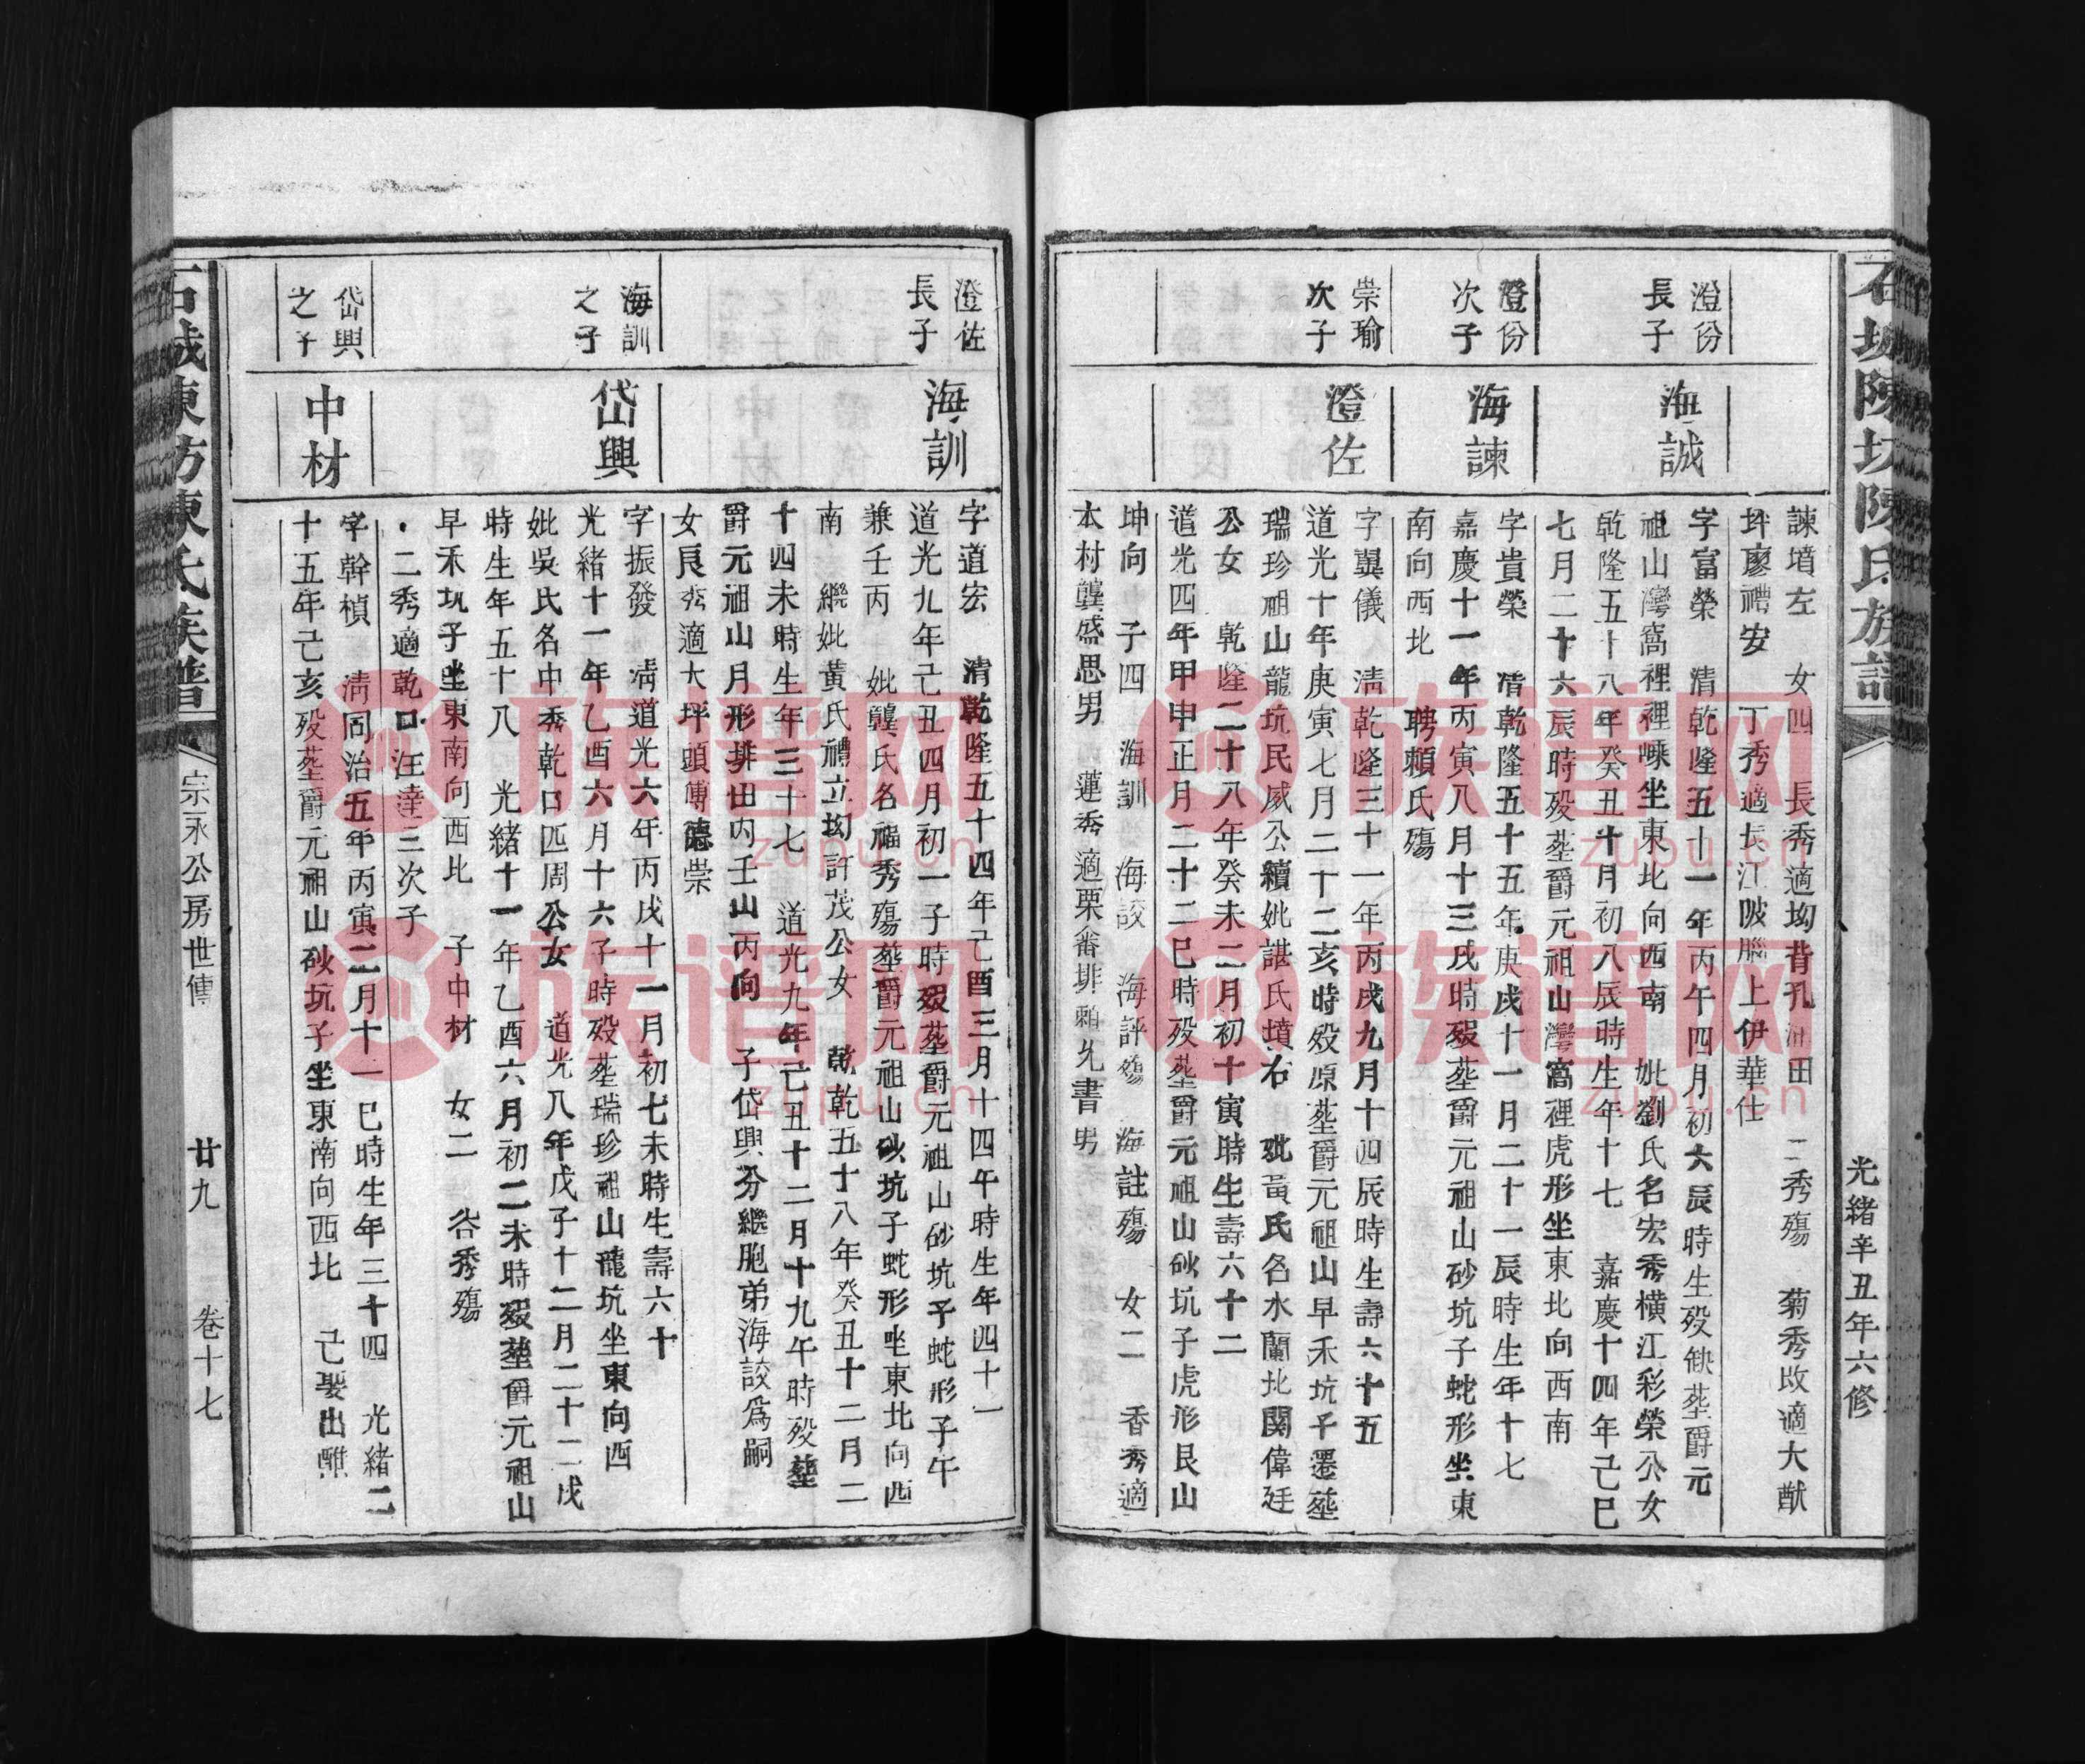 石城陳坊陳氏族譜
光緒辛丑年六修
諫墳左 女四 長秀適坳背孔田 二秀殤 菊秀改適大猷
坪廖禮安 丁秀適長江陂腦上伊華仕
澄份長子
海誠
字富榮 清乾隆五十一年丙午四月初六辰時生歿缺塟爵元
祖山灣窩裡裡嵊坐東北向西南 妣劉氏名宏秀橫江彩榮公女
乾隆五十八年癸丑十月初八辰時生年十七 嘉慶十四年己巳
七月二十六辰時歿塟爵元祖山灣窩裡虎形坐東北向西南
澄份次子
海諫
字貴榮 清乾隆五十五年庚戌十一月二十一辰時生年十七
嘉慶十一年丙寅八月十三戌時歿塟爵元祖山砂坑子蛇形坐東
南向西北 聘賴氏殤
崇瑜次子
澄佐
字翼儀 清乾隆三十一年丙戌九月十四辰時生壽六十五
道光十年庚寅七月二十二亥時歿原塟爵元祖山早禾坑子遷塟
瑞珍祖山龍坑民威公續妣諶氏墳右 妣黃氏名水蘭北関偉廷
公女 乾隆二十八年癸未二月初十寅時生壽六十二
道光四年甲申正月二十二巳時歿塟爵元祖山砂坑子虎形艮山
坤向 子四 海訓 海詨 海評殤 海註殤 女二 香秀適
本村龔盛思男 蓮秀適栗畨排賴允書男
澄佐長子
海訓
字道宏 清乾隆五十四年己酉三月十四午時生年四十一
道光九年己丑四月初一子時歿塟爵元祖山砂坑子蛇形子午
兼壬丙 妣龔氏名福秀殤塟爵元祖山砂坑子蛇形坐東北向西
南 繼妣黃氏禮立坳許茂公女 乾五十八年癸丑十二月二
十四未時生年三十七 道光九年己丑十二月十九午時歿塟
爵元祖山月形排山內壬山丙向 子岱興分繼胞弟海詨爲嗣
女艮秀適大坪頭傅德崇
海訓之子
岱興
字振發 清道光六年丙戌十一月初七未時生壽六十
光緒十一年乙酉六月十六子時歿塟瑞珍祖山龍坑坐東向西
妣吳氏名中秀乾口匹周公女 道光八年戊子十二月二十二戌
時生年五十八 光緒十一年乙酉六月初二未時歿塟爵元祖山
早禾坑子坐東南向西北 子中材 女二 谷秀殤
二秀適乾口汪達三次子
岱興之子
中材
字幹楨 清同治五年丙寅二月十一巳時生年三十四 光緒二
十五年己亥歿塟爵元祖山砂坑子坐東南向西北 己娶出醮
石城陳坊陳氏族譜
宗永公房世傳
廿九
卷十七
族谱网
zupu.cn
族谱网
zupu.cn
族谱网
zupu.cn
族谱网
zupu.cn